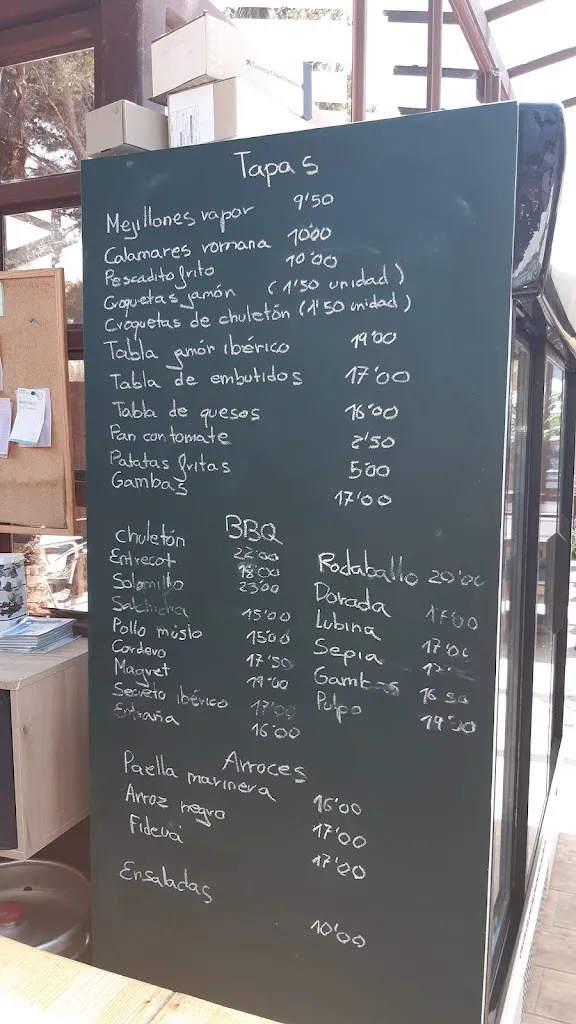 Tapas
Mejillones vapor 9'50
Calamares romana 10'00
Pescadito frito 10'00
Croquetas jamón (1'50 unidad)
Croquetas de chuletón (1'50 unidad)
Tabla jamón ibérico 19'00
Tabla de embutidos 17'00
Tabla de quesos 16'00
Pan con tomate 2'50
Patatas fritas 5'00
Gambas 17'00
BBQ
Chuletón 22'00
Entrecot 18'00
Solomillo 23'00
Salchicha 15'00
Pollo muslo 15'00
Cordero 17'50
Magret 19'00
Secreto ibérico 17'00
Entraña 16'00
Rodaballo 20'00
Dorada 17'00
Lubina 17'00
Sepia
Gambas 16'50
Pulpo 19'50
Arroces
Paella marinera 16'00
Arroz negro 17'00
Fideuá 17'00
Ensaladas 10'00